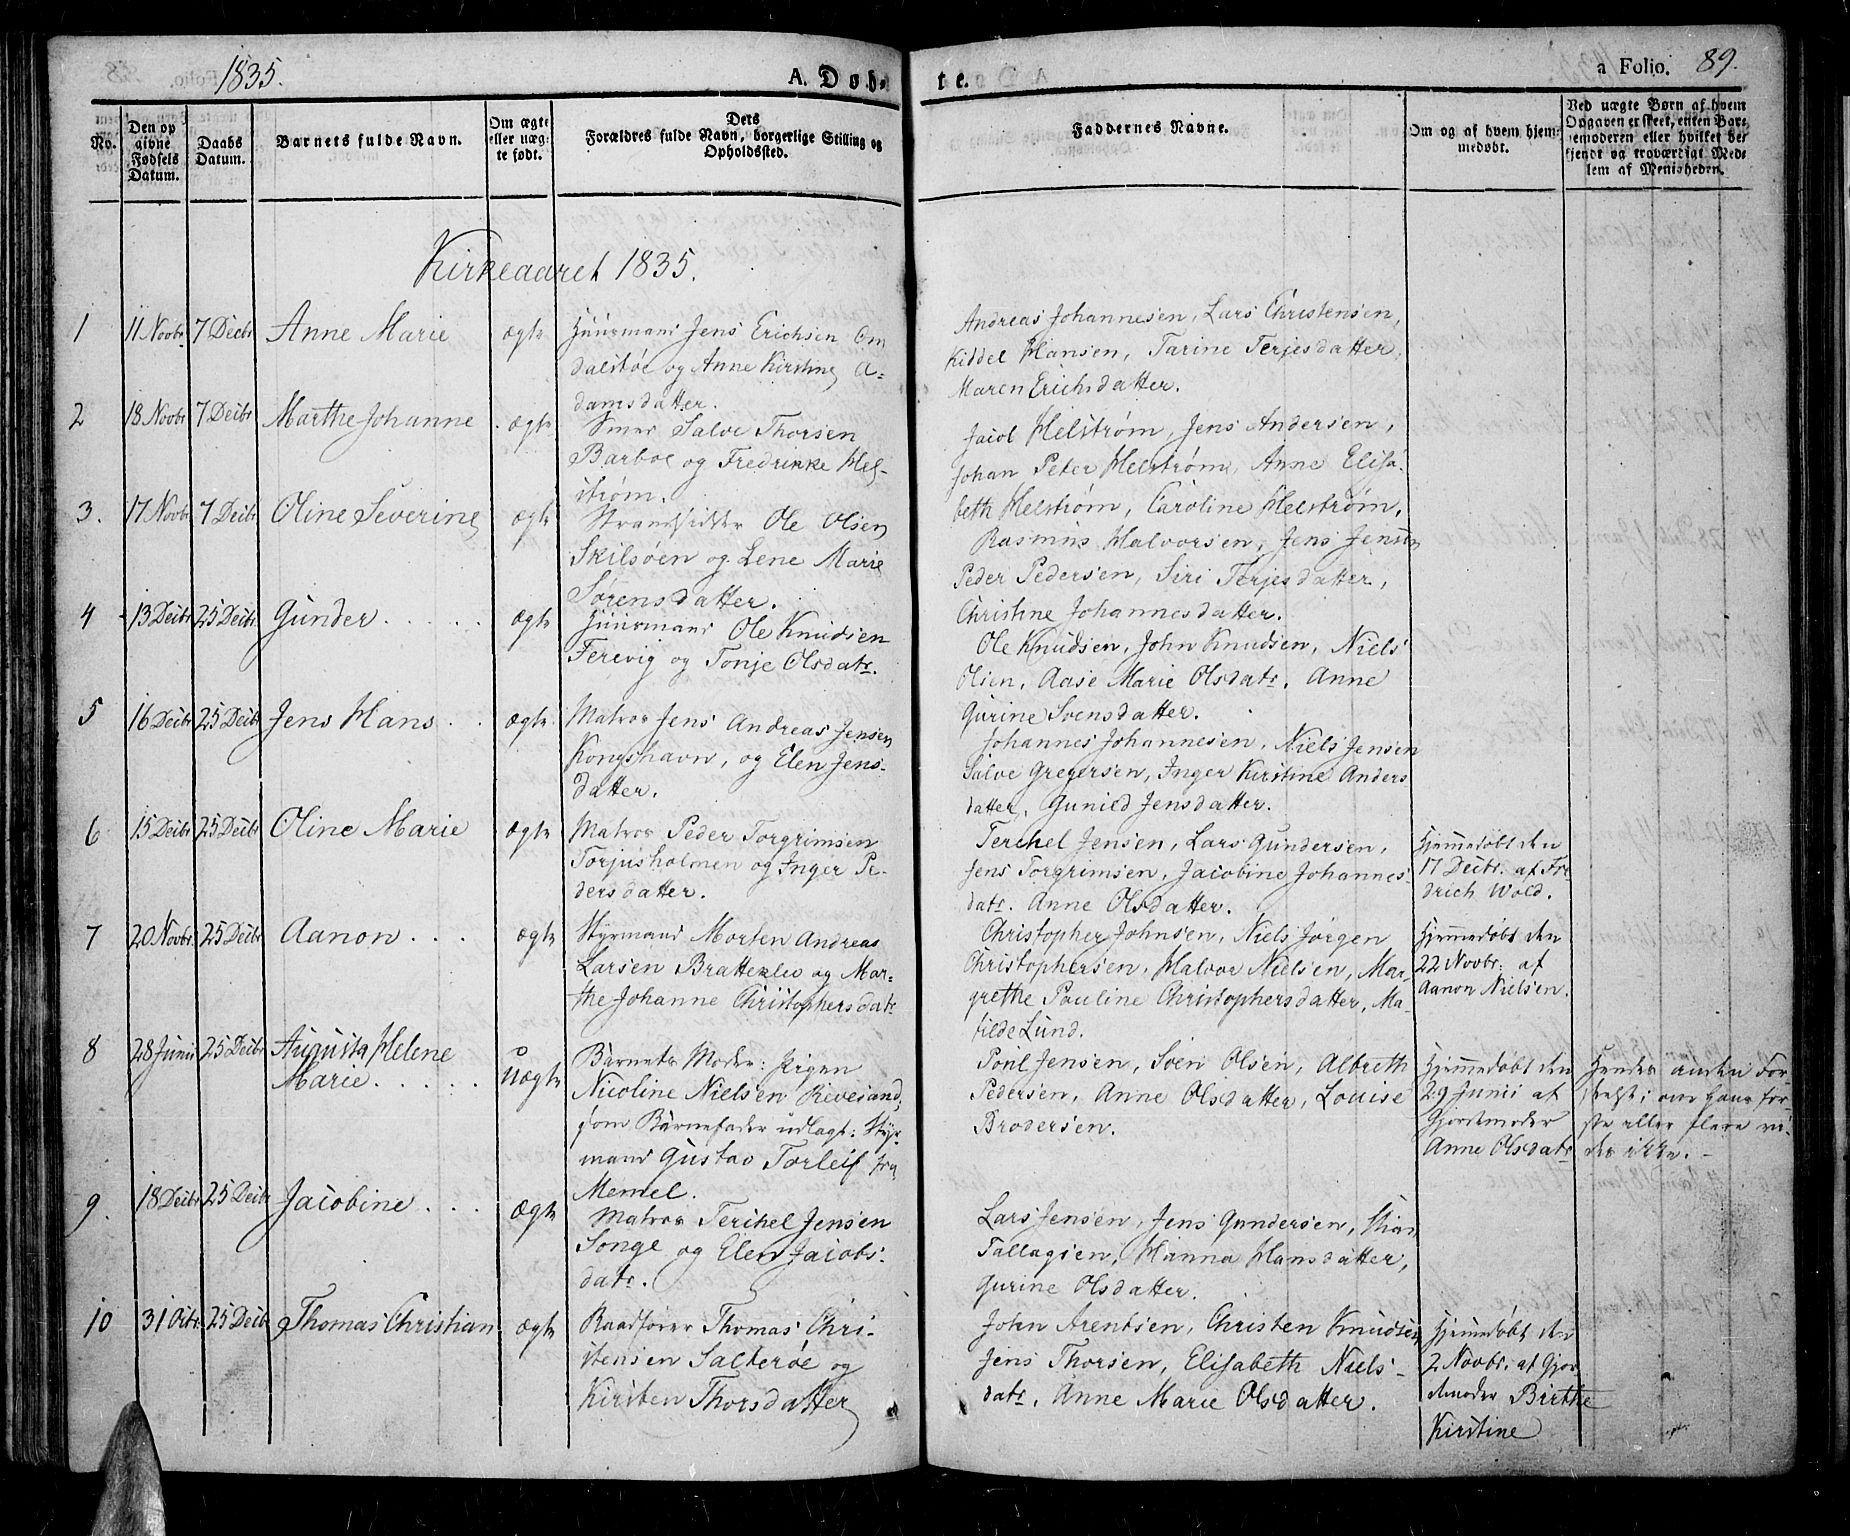 1835.
A. Døb-
te.
a Folio. 89.
No.
Den op
givne
Fødsels
Datum.
Daabs
Datum.
Barnets fulde Navn.
Om ægte
eller uæg-
te født.
Dets
Forældres fulde Navn, borgerlige Stilling og
Opholdssted.
Faddernes Navne.
Om og af hvem hjem-
medøbt.
Ved uægte Børn af hvem
Opgaven er skeet, enten Bar-
nemoderen eller hvilket be-
kjendt og troværdigt Med-
lem af Menigheden.
Kirkeaaret 1835.
1
11 Novbr
7 Decbr
Anne Marie
ægte
Huusmand Jens Erichsen Om
dalstøe og Anne Kirstine A-
damsdatter.
Andreas Johannesen, Lars Christensen,
Kiddel Hansen, Tarine Terjesdatter,
Maren Erichsdatter.
2
18 Novbr
7 Decbr
Marthe Johanne
ægte
Smed Salve Thorsen
Barboe og Fredrikke Hel-
strøm.
Jacob Helstrøm, Jens Andersen,
Johan Peter Helstrøm, Anne Elisa-
beth Helstrøm, Caroline Helstrøm.
3.
17 Novbr
7 Decbr
Oline Severine
ægte
Strandsidder Ole Olsen
Skilsøen og Lene Marie
Sørensdatter.
Rasmus Halvorsen, Jens Jensen
Peder Pedersen, Siri Terjesdatter,
Christine Johannesdatter.
4
13 Decbr
25 Decbr
Gunder
ægte
Huusmand Ole Knudsen
Ferevig og Tonje Olsdatr.
Ole Knudsen, John Knudsen, Niels
Olsen, Aase Marie Olsdatr. Anne
Gurine Svensdatter.
5
16 Decbr
25 Decbr
Jens Hans
ægte
Matros Jens Andreas Jensen
Kongshavn, og Elen Jens-
datter.
Johannes Johannesen, Niels Jensen
Salve Gregersen, Inger Kirstine Anders
datter, Gunild Jensdatter.
6
15 Decbr
25 Decbr
Oline Marie
ægte
Matros Peder Torgrimsen
Torjusholmen og Inger Pe-
dersdatter.
Terchel Jensen, Lars Gundersen,
Jens Torgrimsen, Jacobine Johannes-
datr. Anne Olsdatter.
Hjemmedøbt den
17 Decbr. af Fre
drich Wold.
7
20 Novbr
25 Decbr
Aanon
ægte
Styrmand Morten Andreas
Larsen Bratteklev og Mar-
the Johanne Christophersdatr
Christopher Johnsen, Niels Jørgen
Christophersen, Halvor Nielsen, Mar-
grethe Pauline Christophersdatter, Ma-
tilde Lund.
Hjemmedøbt den
22 Novbr. af
Aanon Nielsen.
8
28 Junii
25 Decbr
Augusta Helene
Marie
uægte
Barnets Moder: Pigen
Nicoline Nielsen Revesand,
som Barnefader udlagt: Styr-
mand Gustav Torleif fra
Memel.
Poul Jensen, Sven Olsen, Albreth
Pedersen, Anne Olsdatter, Louise
Brodersen.
Hjemmedøbt den
29 Junii af
Gjordemoder
Anne Olsdatr
Hendes anden For-
seelse; om hans før-
ste eller flere vi-
des ikke.
9.
18 Decbr
25 Decbr
Jacobine
ægte
Matros Terchel Jensen
Songe og Elen Jacobs-
datr.
Lars Jensen, Jens Gundersen, Stian
Tallagsen, Hanna Hansdatter,
Gurine Olsdatter.
10
31 Octbr
25 Decbr
Thomas Christian
ægte
Baadfører Thomas Chri-
stensen Salterøe og
Kirsten Thorsdatter
John Arentsen, Christen Knudsen,
Jens Thorsen, Elisabeth Niels-
datr, Anne Marie Olsdatter.
Hjemmedøbt den
2 Novbr. af Gjor
demoder Birthe
Kirstine